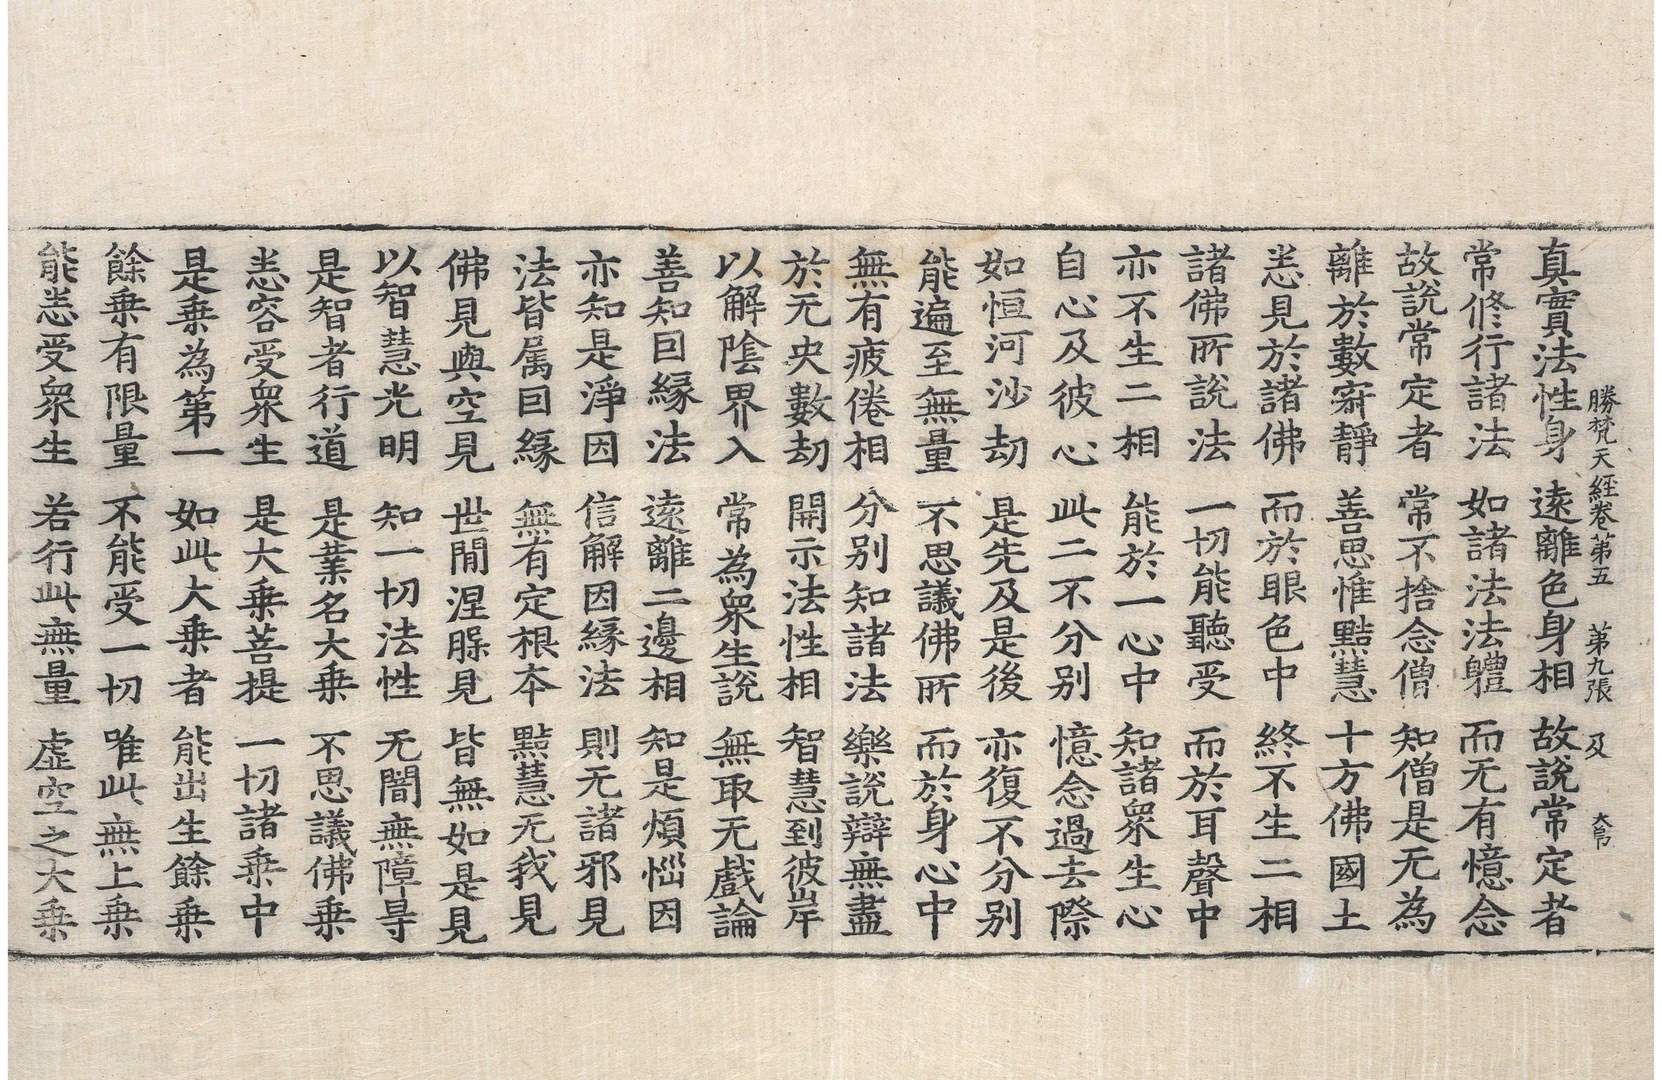 勝梵天經卷第五 第九張 及
真實法性身 遠離色身相 故說常定者
常修行諸法 如諸法法軆 而无有憶念
故說常定者 常不捨念僧 知僧是无為
離於數寂靜 善思惟黠慧 十方佛國土
悉見於諸佛 而於眼色中 終不生二相
諸佛所說法 一切能聽受 而於耳聲中
亦不生二相 能於一心中 知諸衆生心
自心及彼心 此二不分別 憶念過去際
如恒河沙劫 是先及是後 亦復不分別
能遍至無量 不思議佛所 而於身心中
無有疲倦相 分別知諸法 樂說辯無盡
於无央數劫 開示法性相 智慧到彼岸
以解陰界入 常為衆生說 無取无戲論
善知因緣法 遠離二邊相 知是煩惱因
亦知是淨因 信解因緣法 則无諸邪見
法皆属因緣 無有定根本 黠慧无我見
佛見與空見 世間涅槃見 皆無如是見
以智慧光明 知一切法性 无闇無障㝵
是智者行道 是業名大乗 不思議佛乗
悉容受衆生 是大乗菩提 一切諸乗中
是乗為第一 如此大乗者 能出生餘乗
餘乗有限量 不能受一切 唯此無上乗
能悉受衆生 若行此無量 虛空之大乗